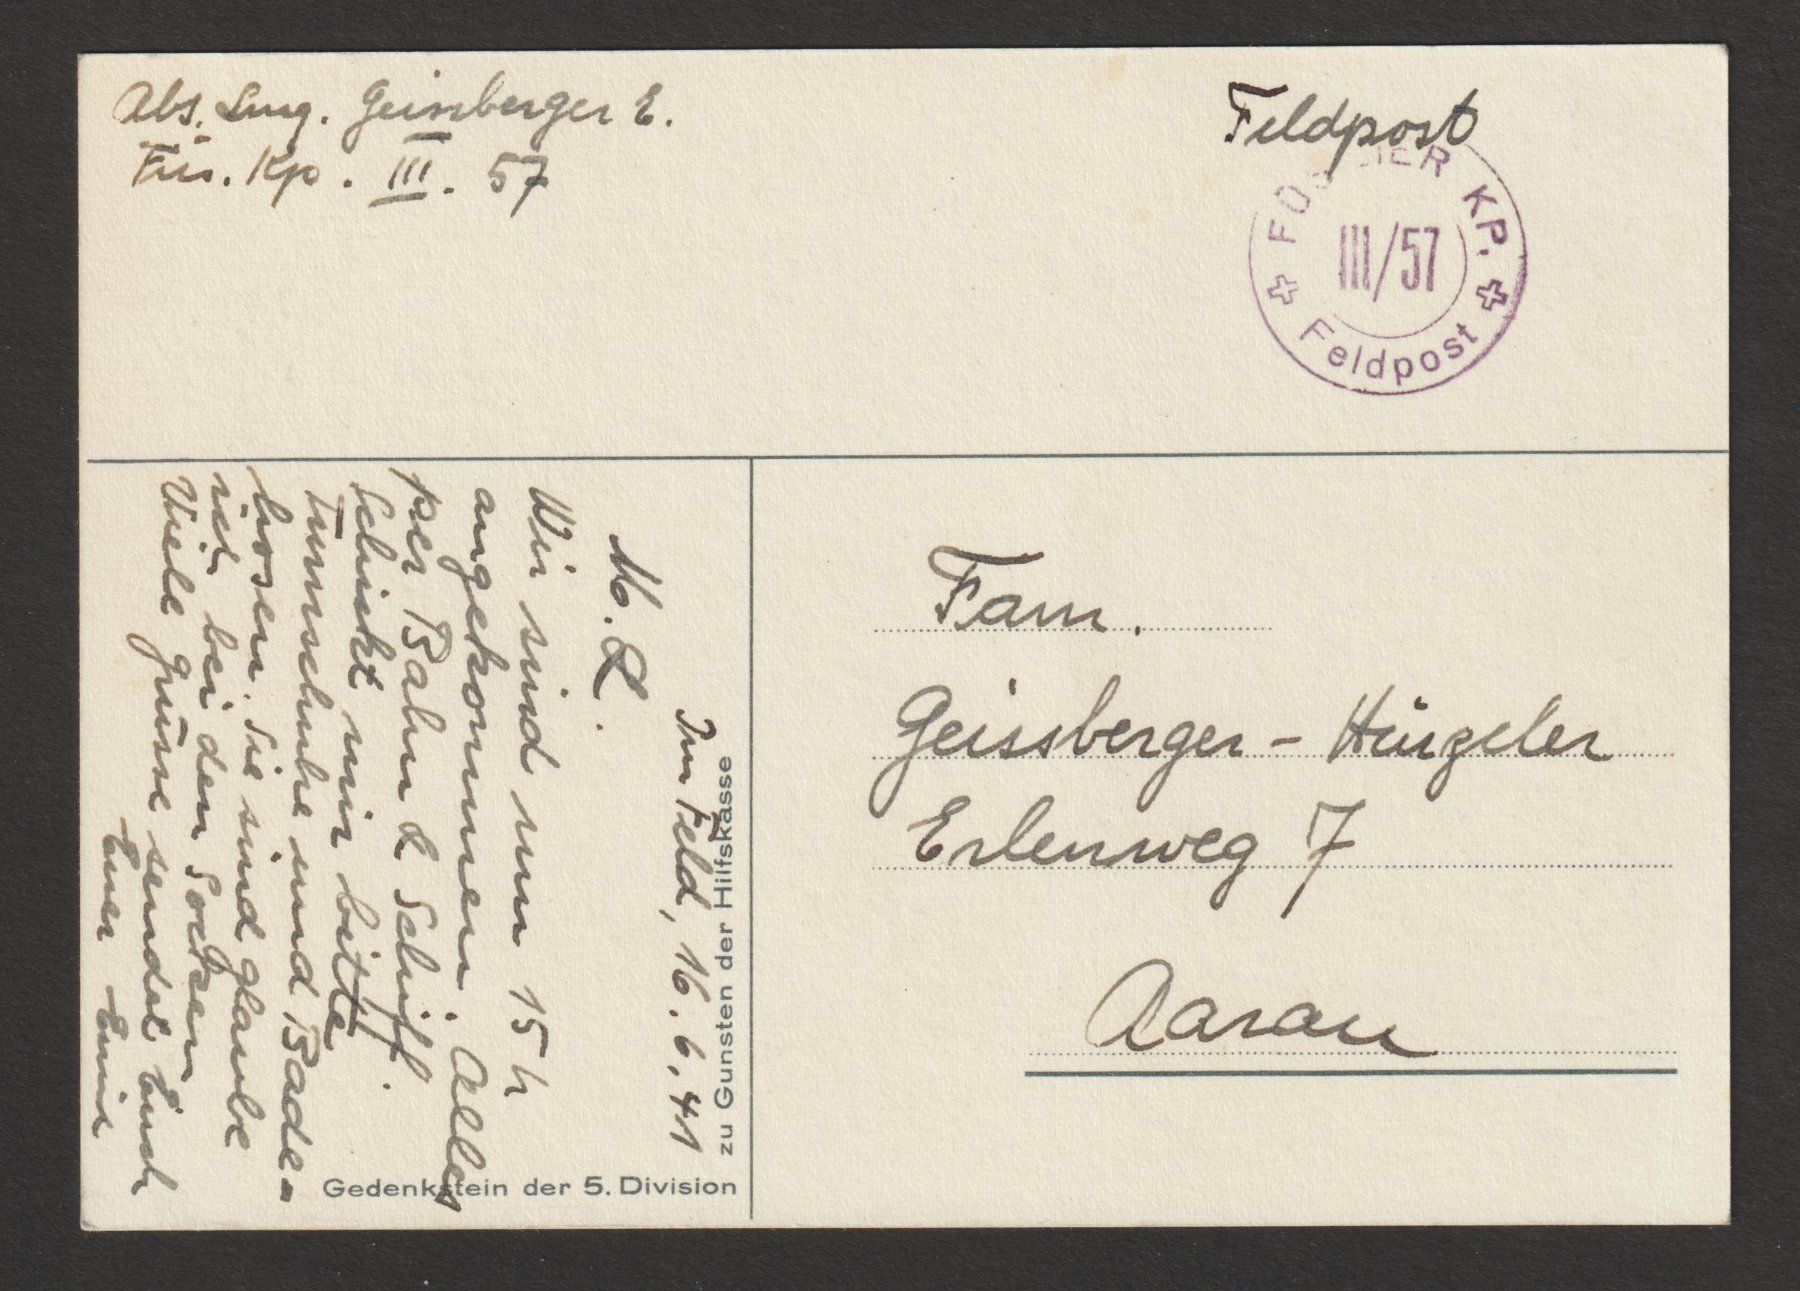 Abs. Lmg. Geissberger E.
Füs. Kp. III. 57
Feldpost
FÜSILIER KP.
III/57
Feldpost
Im Feld, 16.6.41
M. L.
Wir sind um 15 h
angekommen. Alles
per Bahn & Schiff.
Schickt mir bitte
Turnschuhe und Bade-
hosen. Sie sind glaube
ich bei den Socken
Viele Grüsse sendet Euch
Euer
zu Gunsten der Hilfskasse
Gedenkstein der 5. Division
Fam.
Geissberger - Hürzeler
Erlenweg 7
Aarau